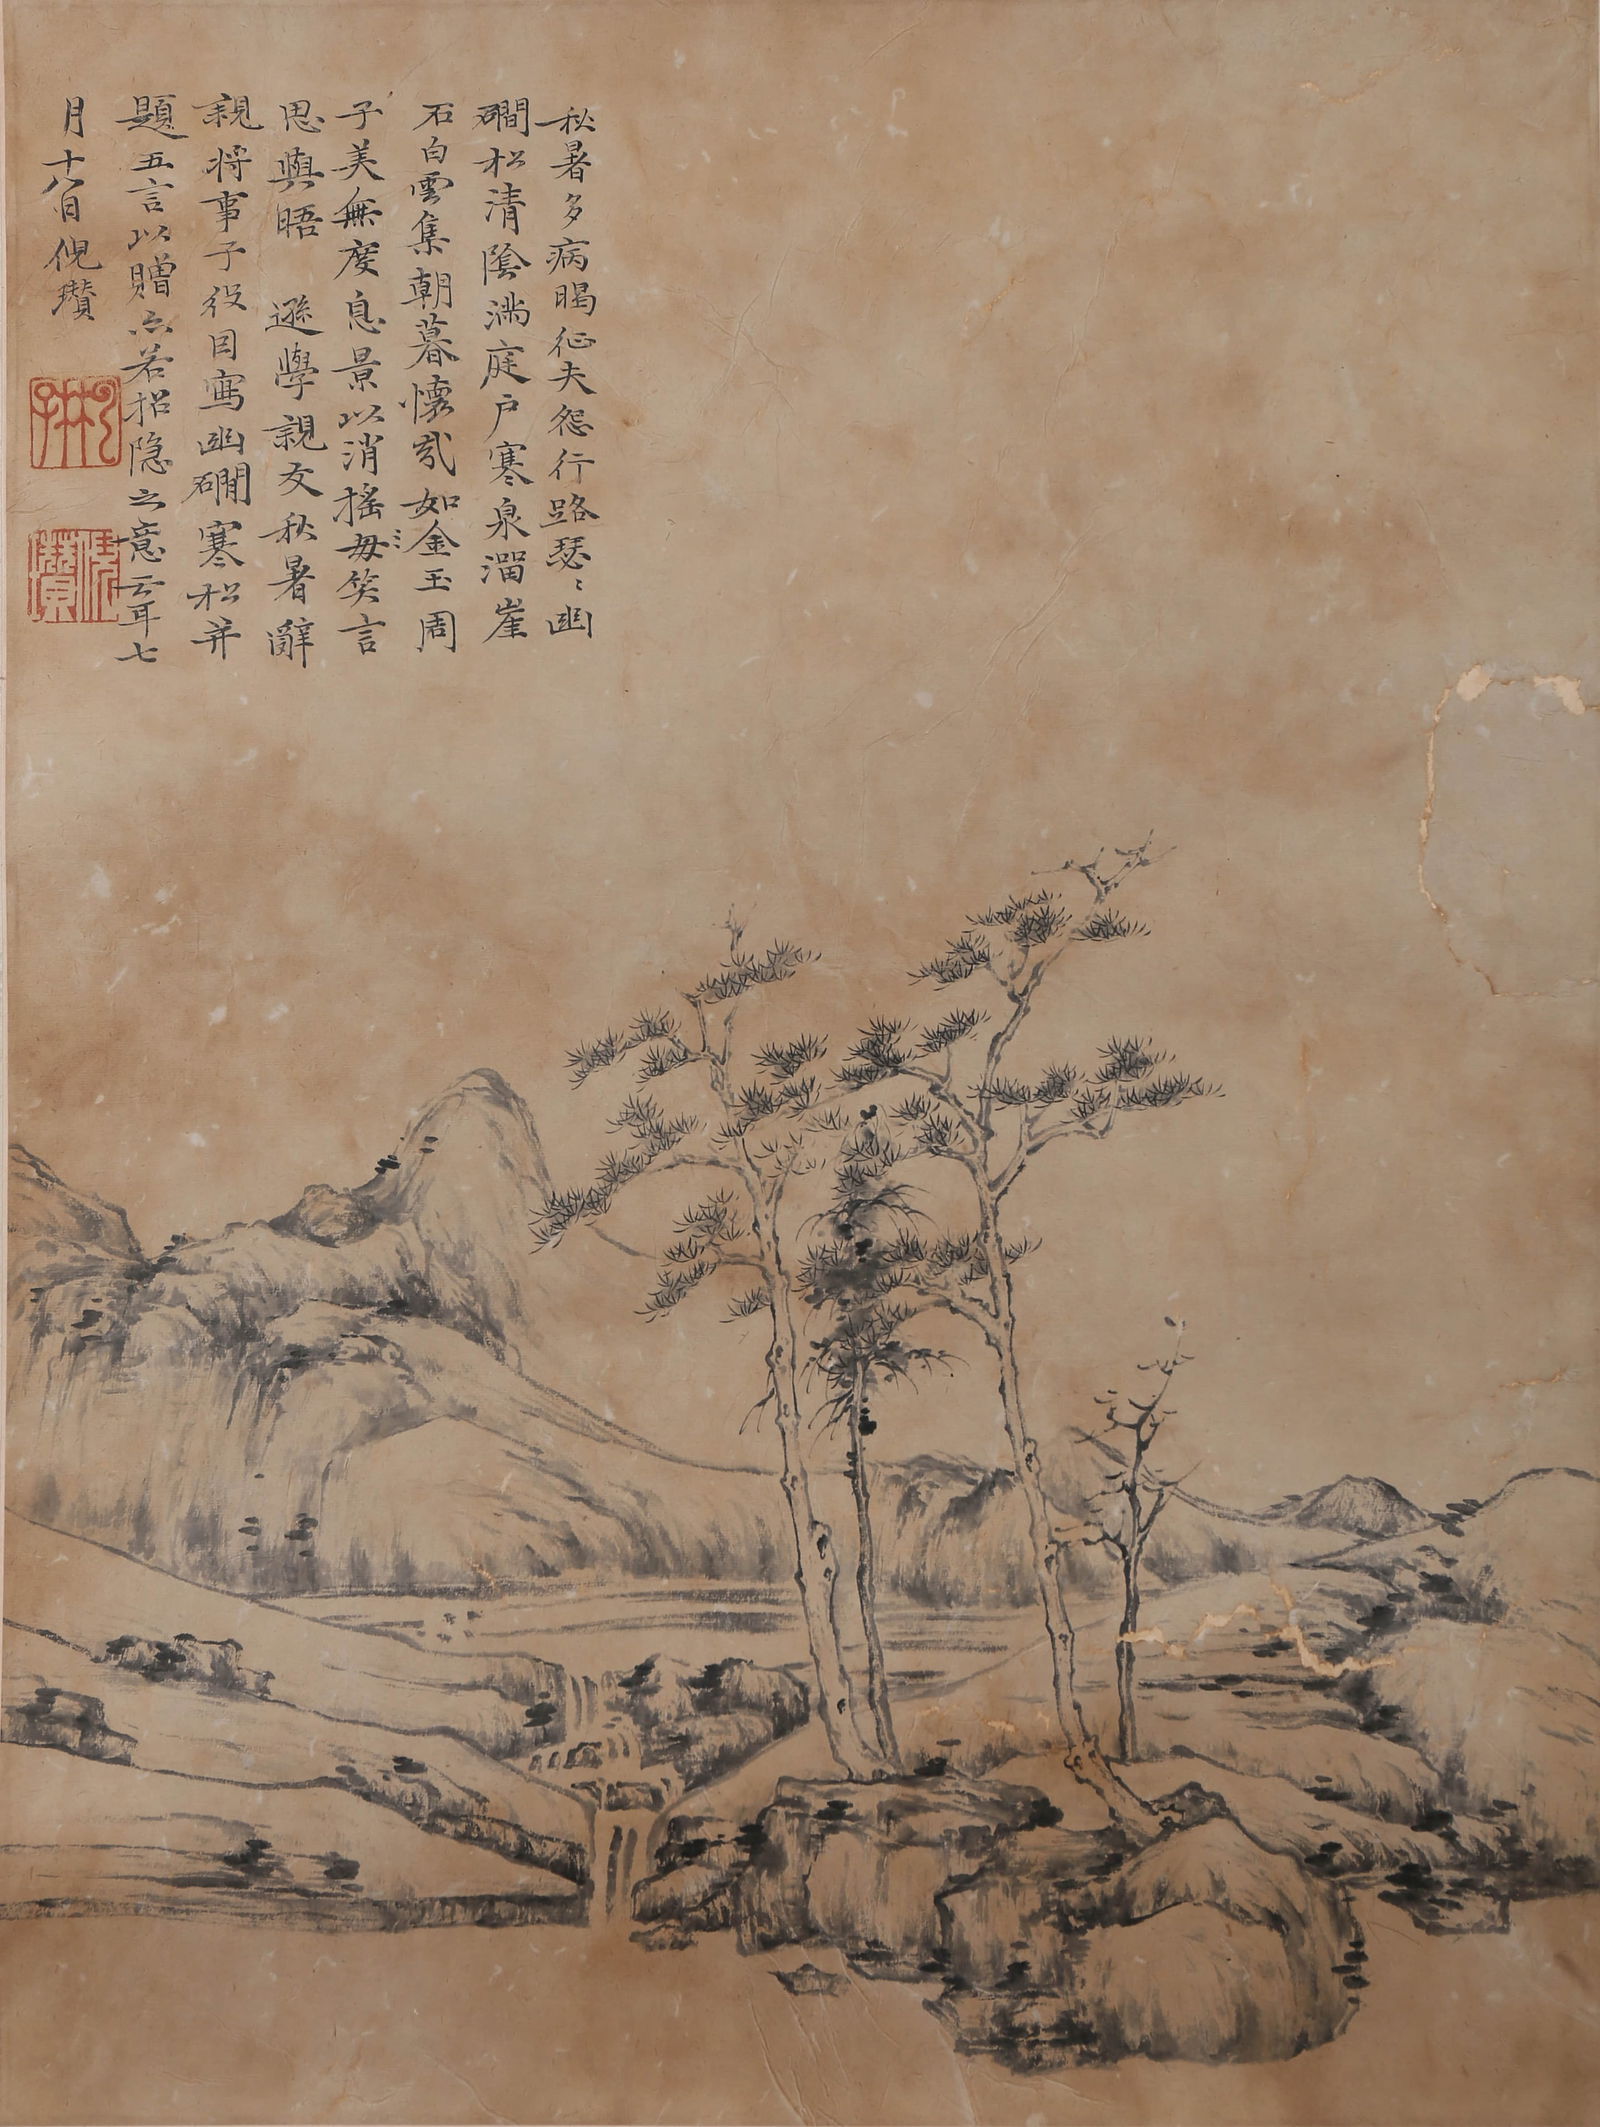 秋暑多病暍征夫怨行路瑟〻幽
磵松清陰滿庭户寒泉溜崖
石白雲集朝暮懷哉如金玉周
子美無度息景以消搖毋笑言
思與晤 遜學親友秋暑辭
親将事于役因寫幽磵寒松并
題五言以贈亦若招隐之意云耳七
月十八日倪瓚